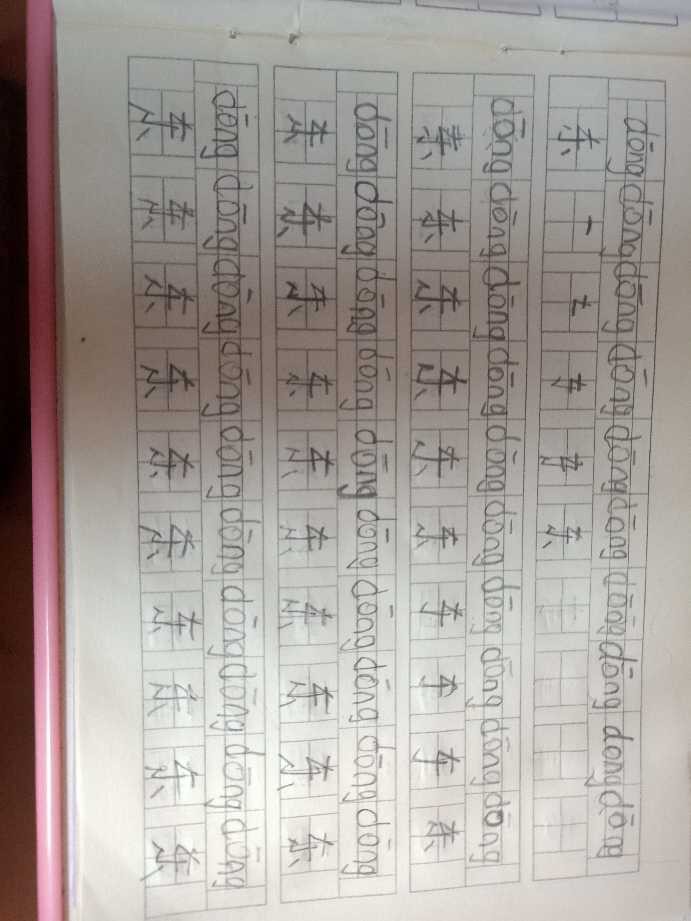 dōng dōng dōng dōng dōng dōng dōng dōng dong dōng
东 一 东
dōng dōng dōng dōng dōng dōng dōng dōng dōng dōng
东 东 东 东 东 东 东
dōng dōng dōng dōng dōng dōng dōng dōng dōng dōng
东 东 东 东 东 东 东 东 东 东
dōng dōng dōng dōng dōng dōng dōng dōng dōng dōng
东 东 东 东 东 东 东 东 东 东